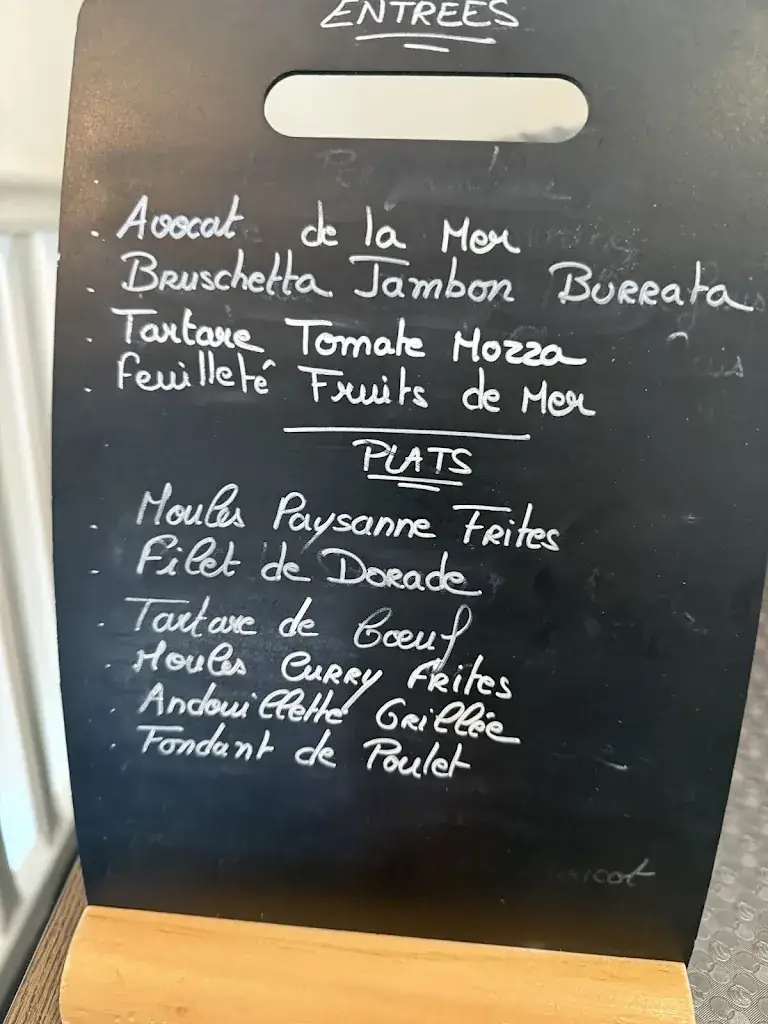 ENTREES
. Avocat de la Mer
. Bruschetta Jambon Burrata
. Tartare Tomate Mozza
. Feuilleté Fruits de Mer
PLATS
. Moules Paysanne Frites
- Filet de Dorade
. Tartare de Boeuf
. Moules Curry Frites
. Andouillette Grillée
. Fondant de Poulet